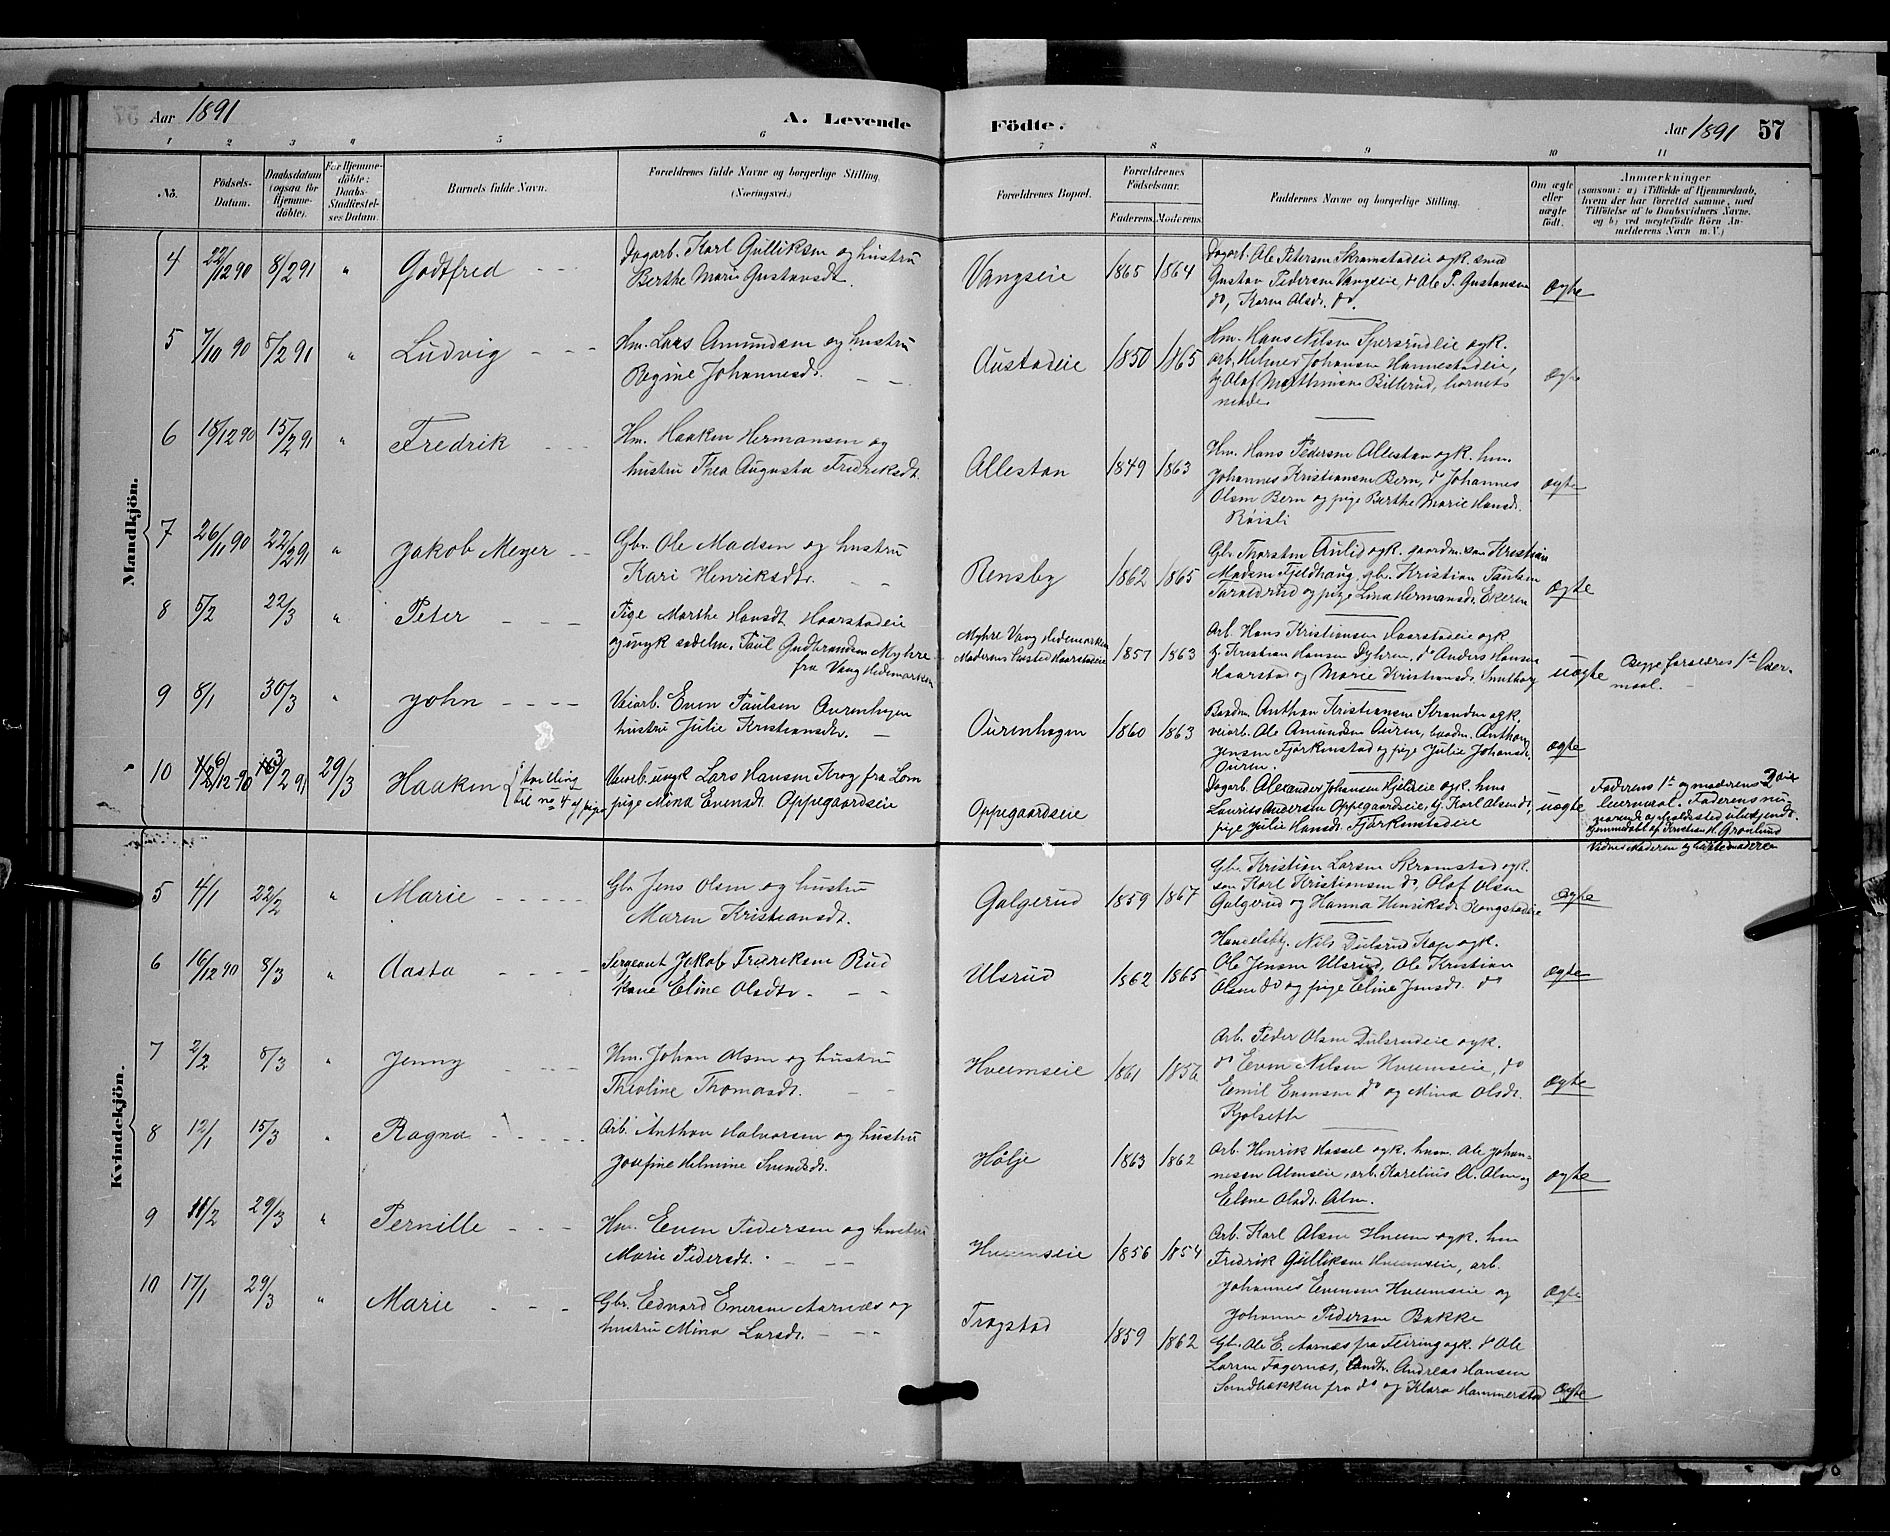 Aar 1891
A. Levende
Födte.
Aar 1891 57
1 2 3 4 5 6 7 8 9 10 11
No.
Födsels-
Datum.
Daabsdatum
(ogsaa for
Hjemme-
döbte).
For Hjemme-
döbte:
Daabs-
Stadfæstel-
ses Datum.
Barnets fulde Navn.
Forældrenes fulde Navne og borgerlige Stilling.
(Næringsvei.)
Forældrenes Bopæl.
Forældrenes
Födselsaar.
Faderens. Moderens.
Faddernes Navne og borgerlige Stilling.
Om ægte
eller
uægte
födt.
Anmærkninger
(saasom: a) i Tilfælde af Hjemmedaab,
hvem der har forrettet samme, med
Tilföielse af to Daabsvidners Navne,
og b) ved uægtefödte Börn An-
melderens Navn m. V.)
Mandkjön.
4 22/12 90 8/2 91 " Godtfred
Dagarb. Karl Gulliksen og hustru
Berthe Marie Gustavsdt.
Vangseie 1865 1864
Dagarb. Ole Petersen Skramstadeie ogk. smed
Gustav Pedersen Vangseie, do Ole P. Gustavsen
do, Karen Olsdt. do.
ægte
5 7/10 90 8/2 91 " Ludvig
Hm. Lars Amundsen og hustru
Regine Johannesdt.
Austadeie 1850 1865
Hm. Hans Nilsen Spersrudeie ogk.
arb. Helmer Johansen Hannestadeie,
tj. Olaf Mathinsen Billerud, barnets
moder
ægte
6 18/12 90 15/2 91 " Fredrik
Hm. Haaken Hermansen og
hustru Thea Augusta Fredriksdt.
Allestan 1849 1863
Hm. Hans Pedersen Allestan ogk. hm.
Johannes Kristiansen Bern, do Johannes
Olsen Bern og pige Berthe Marie Hansdt.
Röisli
ægte
7 26/11 90 22/2 91 " Jakob Meyer
Gbr. Ole Madsen og hustru
Kari Henriksdt.
Rensby 1862 1865
Gbr. Thorsten Aulid ogk. gaardm. søn Kristian
Madsen Fjeldhaug, gbr. Kristian Paulsen
Taraldrud og pige Lina Hermansdt. Ekeren
ægte
8 5/2 22/3 " Peter
Pige Marthe Hansdt Haarstadeie
og ungk sadelm. Paul Gudbrandsen Myhre
fra Vang Hedemarken
Myhre Vang Hedemarken
Moderens bosted Haarstadeie
1857 1863
Arb. Hans Kristiansen Haarstadeie ogk
tj. Kristian Hansen Dyhren, do Anders Hansen
Haarstad og Marie Kristiansdt.
uægte
Begge forældres 1te Leier-
maal.
9 8/1 30/3 " John
Veiarb. Even Paulsen Aurenhagen
hustru Julie Kristiansdt.
Ourenhagen 1860 1863
Baadm. Anthon Kristiansen Stranden ogk.
veiarb. Ole Amundsen Ouren, baadm. Anthon
Jensen Fjærkenstad og pige Julie Johansdt.
Ouren.
ægte
10 6/12 90 3/2 91 29/3 Haaken
tvilling
til no 4 af piger
Veiarb. ungk Lars Hansen Krog fra Lom
pige Mina Evensdt. Oppegaardseie
Oppegaardseie
Dagarb. Alexander Johansen Kjeldeie ogk. hm
Laurits Andersen Oppegaardseie, tj. Karl Olsen do,
pige Julie Hansdt. Fjærkenstadeie
uægte
Faderens 1te og moderens 2det
leiermaal. Faderens nu-
værende opholdssted ubekjendt.
Hjemmedøbt af Kristian H. Grønlund
Vidner Moderen og
Kvindekjön.
5 4/1 22/2 " Marie
Gbr. Jens Olsen og hustru
Maren Kristiansdt.
Galgerud 1859 1867
Gbr. Kristian Larsen Skramstad ogk.
søn Karl Kristiansen do, Olaf Olsen
Galgerud og Hanna Henriksdt. Kongstadeie
ægte
6 16/12 90 8/3 " Aasta
Sergeant Jakob Fredriksen Rud
Kone Eline Olsdtr.
Ulsrud 1862 1865
Handelsbtj. Nils Dulsrud Kap ogk.
Ole Jensen Ulsrud, Ole Kristian
Olsen do og pige Eline Jensdt. do
ægte
7 2/2 8/3 " Jenny
Hm. Johan Olsen og hustru
Theoline Thomasdt.
Hveemseie 1861 1856
Arb. Peder Olsen Dulsrudeie ogk.
do Even Nilsen Hveemseie, do
Emil Evensen do og Mina Olsdt.
Kjølsette
ægte
8 12/1 15/3 " Ragna
Arb. Anthon Halvorsen og hustru
Josefine Helmine Svendsdt.
Hölje 1863 1862
Arb. Henrik Hassel ogk. husm. Ole Johan-
nessen Almseie, arb. Karelius A. Alm og
Elene Olsdt. Alm.
ægte
9 11/2 29/3 " Pernille
Hm. Even Pedersen og hustru
Marie Pedersdt.
Hveemseie 1856 1854
Arb. Karl Olsen Hveem ogk. hm
Fredrik Gulliksen Hveemseie, arb.
Johannes Evensen Hveemseie og
Johanne Pedersen Bakke
ægte
10 17/1 29/3 " Marie
Gbr. Edvard Enersen Aarnæs og
hustru Mina Larsdt.
Trogstad 1859 1862
Gbr. Ole E. Aarnæs fra Feiring ogk. do Ole
Larsen Fagernæs, Andreas Hansen
Sandbækken fra do og Klara Hammerstad
ægte